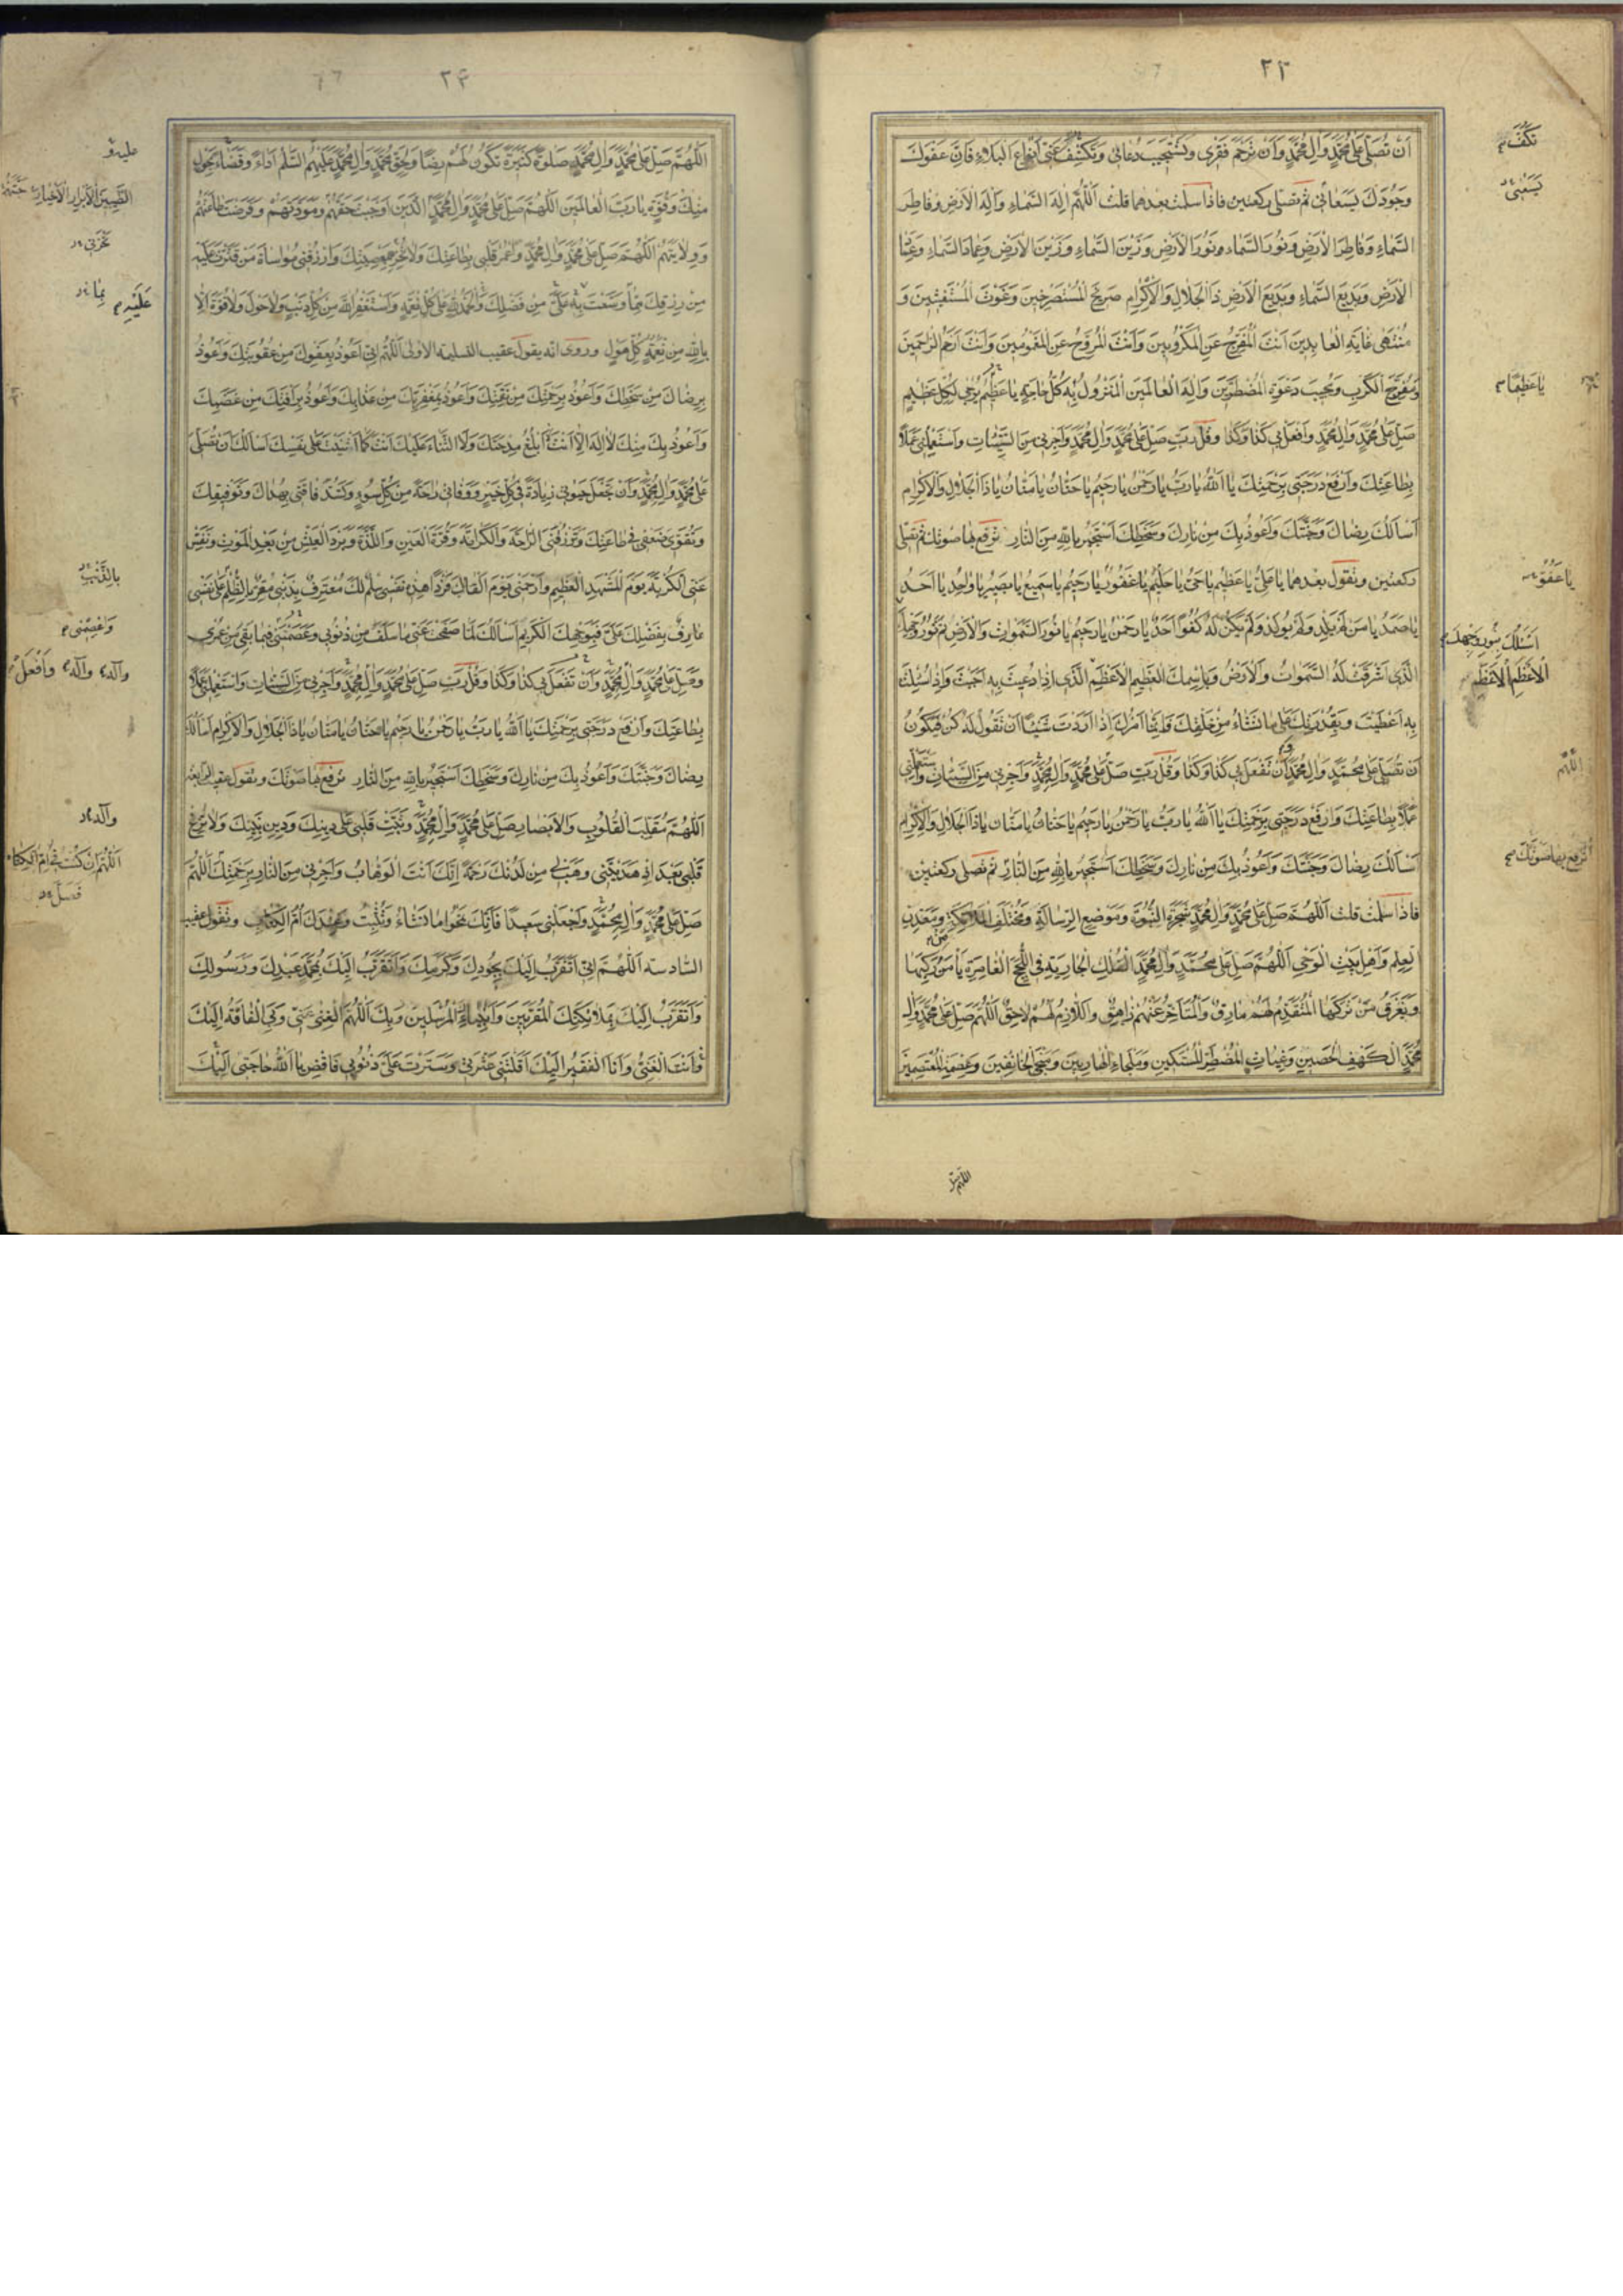 ٢٣
اَنْ تُصَلِّىَ عَلىٰ مُحَمَّدٍ وَالِ مُحَمَّدٍ وَاَنْ تَرْحَمَ فَقْرى وَتَسْتَجيبَ دُعائى وَتَكْشِفَ عَنّى اَنْواعَ الْبَلاءِ فَاِنَّ عَفْوَكَ
وَجُودَكَ يَسَعانى ثم تصلى ركعتين فاذا سلمت بعدهما قلت اَللّهُمَّ اِلهَ السَّماءِ وَاِلهَ الْاَرْضِ وَفاطِرَ
السَّماءِ وَفاطِرَ الْاَرْضِ وَنُورَ السَّماءِ وَنُورَ الْاَرْضِ وَزَيْنَ السَّماءِ وَزَيْنَ الْاَرْضِ وَعِمادَ السَّماءِ وَعِمادَ
الْاَرْضِ وَبَديعَ السَّماءِ وَبَديعَ الْاَرْضِ ذَا الْجَلالِ وَالْاِكْرامِ صَريخَ الْمُسْتَصْرِخينَ وَغَوْثَ الْمُسْتَغيثينَ وَ
مُنْتَهى غايَةِ الْعابِدينَ اَنْتَ الْمُفَرِّجُ عَنِ الْمَكْرُوبينَ وَاَنْتَ الْمُرَوِّحُ عَنِ الْمَغْمُومينَ وَاَنْتَ اَرْحَمُ الرّاحِمينَ
وَمُفَرِّجُ الْكَرْبِ وَمُجيبَ دَعْوَةِ الْمُضْطَرّينَ وَاِلهَ الْعالَمينَ الْمَنْزُولُ بِهِ كُلُّ حاجَةٍ يا عَظيمُ يُرْجى لِكُلِّ عَظيمٍ
صَلِّ عَلى مُحَمَّدٍ وَالِ مُحَمَّدٍ وَافْعَلْ بى كَذا وَكَذا وقل رَبِّ صَلِّ عَلى مُحَمَّدٍ وَالِ مُحَمَّدٍ وَاَجِرْنى مِنَ السَّيِّئاتِ وَاسْتَعْمِلْنى عَمَلاً
بِطاعَتِكَ وَارْفَعْ دَرَجَتى بِرَحْمَتِكَ يا اَللّهُ يا رَبِّ يا رَحْمنُ يا رَحيمُ يا حَنّانُ يا مَنّانُ يا ذَا الْجَلالِ وَالْاِكْرامِ
اَسْاَلُكَ رِضاكَ وَجَنَّتَكَ وَاَعُوذُ بِكَ مِنْ نارِكَ وَسَخَطِكَ اَسْتَجيرُ بِاللّهِ مِنَ النّارِ ترفع بها صوتك ثم تصلى
ركعتين وتقول بعدهما يا عَلِىُّ يا عَظيمُ يا حَىُّ يا حَليمُ يا غَفُورُ يا رَحيمُ يا سَميعُ يا بَصيرُ يا واحِدُ يا اَحَدُ
يا صَمَدُ يا مَنْ لَمْ يَلِدْ وَلَمْ يُولَدْ وَلَمْ يَكُنْ لَهُ كُفُواً اَحَدٌ يا رَحْمنُ يا رَحيمُ يا نُورَ السَّمواتِ وَالْاَرْضِ تَمَّ نُورُ وَجْهِكَ
الَّذى اَشْرَقَتْ لَهُ السَّمواتُ وَالْاَرْضُ وَبِاسْمِكَ الْعَظيمِ الْاَعْظَمِ الَّذى اِذا دُعيتَ بِهِ اَجَبْتَ وَاِذا سُئِلْتَ
بِهِ اَعْطَيْتَ وَبِقُدْرَتِكَ عَلى ما تَشاءُ مِنْ خَلْقِكَ فَاِنَّما اَمْرُكَ اِذا اَرَدْتَ شَيْئاً اَنْ تَقُولَ لَهُ كُنْ فَيَكُونُ
اَنْ تُصَلِّىَ عَلى مُحَمَّدٍ وَالِ مُحَمَّدٍ وَاَنْ تَفْعَلَ بى كَذا وَكَذا وقل رَبِّ صَلِّ عَلى مُحَمَّدٍ وَالِ مُحَمَّدٍ وَاَجِرْنى مِنَ السَّيِّئاتِ وَاسْتَعْمِلْنى
عَمَلاً بِطاعَتِكَ وَارْفَعْ دَرَجَتى بِرَحْمَتِكَ يا اَللّهُ يا رَبِّ يا رَحْمنُ يا رَحيمُ يا حَنّانُ يا مَنّانُ يا ذَا الْجَلالِ وَالْاِكْرامِ
اَسْاَلُكَ رِضاكَ وَجَنَّتَكَ وَاَعُوذُ بِكَ مِنْ نارِكَ وَسَخَطِكَ اَسْتَجيرُ بِاللّهِ مِنَ النّارِ ثم تصلى ركعتين
فاذا سلمت قلت اَللّهُمَّ صَلِّ عَلى مُحَمَّدٍ وَالِ مُحَمَّدٍ شَجَرَةِ النُّبُوَّةِ وَمَوْضِعِ الرِّسالَةِ وَمُخْتَلَفِ الْمَلائِكَةِ وَمَعْدِنِ
الْعِلْمِ وَاَهْلِ بَيْتِ الْوَحْىِ اَللّهُمَّ صَلِّ عَلى مُحَمَّدٍ وَالِ مُحَمَّدٍ الْفُلْكِ الْجارِيَةِ فِى اللُّجَجِ الْغامِرَةِ يَاْمَنُ مَنْ رَكِبَها
وَيَغْرَقُ مَنْ تَرَكَها الْمُتَقَدِّمُ لَهُمْ مارِقٌ وَالْمُتَاَخِّرُ عَنْهُمْ زاهِقٌ وَاللّازِمُ لَهُمْ لاحِقٌ اَللّهُمَّ صَلِّ عَلى مُحَمَّدٍ وَالِ
مُحَمَّدٍ الْكَهْفِ الْحَصينِ وَغِياثِ الْمُضْطَرِّ الْمُسْتَكينِ وَمَلْجَاءِ الْهارِبينَ وَمَنْجَى الْخائِفينَ وَعِصْمَةِ الْمُعْتَصِمينَ
تكف
يسعنى
يا عظيما
يا عفو
اسئلك بنور وجهك
الاعظم الاعظم
اللهم
ترفع بها صوتك
اللهم صل
٢٤
اَللّهُمَّ صَلِّ عَلى مُحَمَّدٍ وَالِ مُحَمَّدٍ صَلوةً كَثيرَةً تَكُونُ لَهُمْ رِضًا وَلِحَقِّ مُحَمَّدٍ وَالِ مُحَمَّدٍ عَلَيْهِمُ السَّلم اَداءً وَقَضاءً بِحَوْلٍ
مِنْكَ وَقُوَّةٍ يا رَبَّ الْعالَمينَ اَللّهُمَّ صَلِّ عَلى مُحَمَّدٍ وَالِ مُحَمَّدٍ الَّذينَ اَوْجَبْتَ حَقَّهُمْ وَمَوَدَّتَهُمْ وَفَرَضْتَ طاعَتَهُمْ
وَوِلايَتَهُمْ اَللّهُمَّ صَلِّ عَلى مُحَمَّدٍ وَالِ مُحَمَّدٍ وَاعْمُرْ قَلْبى بِطاعَتِكَ وَلا تُخْزِهِ بِمَعْصِيَتِكَ وَارْزُقْنى مُواساةَ مَنْ قَتَّرْتَ عَلَيْهِ
مِنْ رِزْقِكَ مِمّا وَسَّعْتَ بِهِ عَلَىَّ مِنْ فَضْلِكَ وَالْحَمْدُ لِلّهِ عَلى كُلِّ نِعْمَةٍ وَاَسْتَغْفِرُ اللّهَ مِنْ كُلِّ ذَنْبٍ وَلا حَوْلَ وَلا قُوَّةَ اِلّا
بِاللّهِ مِنْ كُلِّ هَوْلٍ وروى انه يقول عقيب التسليمة الاولى اَللّهُمَّ اِنّى اَعُوذُ بِعَفْوِكَ مِنْ عُقُوبَتِكَ وَاَعُوذُ
بِرِضاكَ مِنْ سَخَطِكَ وَاَعُوذُ بِرَحْمَتِكَ مِنْ نَقِمَتِكَ وَاَعُوذُ بِمَغْفِرَتِكَ مِنْ عَذابِكَ وَاَعُوذُ بِرَاْفَتِكَ مِنْ غَضَبِكَ
وَاَعُوذُ بِكَ مِنْكَ لا اِلهَ اِلّا اَنْتَ لا اَبْلُغُ مِدْحَتَكَ وَلَا الثَّناءَ عَلَيْكَ اَنْتَ كَما اَثْنَيْتَ عَلى نَفْسِكَ اَسْاَلُكَ اَنْ تُصَلِّىَ
عَلى مُحَمَّدٍ وَالِ مُحَمَّدٍ وَاَنْ تَجْعَلَ حَيوتى زِيادَةً فى كُلِّ خَيْرٍ وَوَفاتى راحَةً مِنْ كُلِّ سُوءٍ وَتَسُدَّ فاقَتى بِهُداكَ وَتَوْفيقِكَ
وَتُقَوِّىَ ضَعْفى فى طاعَتِكَ وَتَرْزُقَنِى الرّاحَةَ وَالْكَرامَةَ وَقُرَّةَ الْعَيْنِ وَاللَّذَّةَ وَبَرْدَ الْعَيْشِ مِنْ بَعْدِ الْمَوْتِ وَنَفِّسْ
عَنِّى الْكُرْبَةَ يَوْمَ الْمَشْهَدِ الْعَظيمِ وَارْحَمْنى يَوْمَ اَلْقاكَ فَرْداً هذِهِ نَفْسى سِلْمٌ لَكَ مُعْتَرِفٌ بِذَنْبى مُقِرٌّ بِالظُّلْمِ عَلى نَفْسى
عارِفٌ بِفَضْلِكَ عَلَىَّ فَبِوَجْهِكَ الْكَريمِ اَسْاَلُكَ لَمّا صَفَحْتَ عَنّى ما سَلَفَ مِنْ ذُنُوبى وَعَصَمْتَنى فيما بَقِىَ مِنْ عُمْرى
وَصَلِّ عَلى مُحَمَّدٍ وَالِ مُحَمَّدٍ وَاَنْ تَفْعَلَ بى كَذا وَكَذا وقل رَبِّ صَلِّ عَلى مُحَمَّدٍ وَالِ مُحَمَّدٍ وَاَجِرْنى مِنَ السَّيِّئاتِ وَاسْتَعْمِلْنى عَمَلاً
بِطاعَتِكَ وَارْفَعْ دَرَجَتى بِرَحْمَتِكَ يا اَللّهُ يا رَبِّ يا رَحْمنُ يا رَحيمُ يا حَنّانُ يا مَنّانُ يا ذَا الْجَلالِ وَالْاِكْرامِ اَسْاَلُكَ
رِضاكَ وَجَنَّتَكَ وَاَعُوذُ بِكَ مِنْ نارِكَ وَسَخَطِكَ اَسْتَجيرُ بِاللّهِ مِنَ النّارِ ترفع بها صوتك وتقول عقيب الرابعة
اَللّهُمَّ مُقَلِّبَ الْقُلُوبِ وَالْاَبْصارِ صَلِّ عَلى مُحَمَّدٍ وَالِ مُحَمَّدٍ وَثَبِّتْ قَلْبى عَلى دينِكَ وَدينِ نَبِيِّكَ وَلا تُزِغْ
قَلْبى بَعْدَ اِذْ هَدَيْتَنى وَهَبْ لى مِنْ لَدُنْكَ رَحْمَةً اِنَّكَ اَنْتَ الْوَهّابُ وَاَجِرْنى مِنَ النّارِ بِرَحْمَتِكَ اَللّهُمَّ
صَلِّ عَلى مُحَمَّدٍ وَالِ مُحَمَّدٍ وَاجْعَلْنى سَعيداً فَاِنَّكَ تَمْحُوا ما تَشاءُ وَتُثْبِتُ وَعِنْدَكَ اُمُّ الْكِتابِ وتقول عقيب
السادسة اَللّهُمَّ اِنّى اَتَقَرَّبُ اِلَيْكَ بِجُودِكَ وَكَرَمِكَ وَاَتَقَرَّبُ اِلَيْكَ بِمُحَمَّدٍ عَبْدِكَ وَرَسُولِكَ
وَاَتَقَرَّبُ اِلَيْكَ بِمَلائِكَتِكَ الْمُقَرَّبينَ وَاَنْبِيائِكَ الْمُرْسَلينَ وَبِكَ اَللّهُمَّ الْغِنى عَنّى وَبِىَ الْفاقَةُ اِلَيْكَ
وَاَنْتَ الْغَنِىُّ وَاَنَا الْفَقيرُ اِلَيْكَ اَقَلْتَنى عَثْرَتى وَسَتَرْتَ عَلَىَّ ذُنُوبى فَاقْضِ يا اَللّهُ حاجَتى اِلَيْكَ
عليه و
الطيبين الابرار الاخيار
تخزنى
بما
عليه
بالذنب
واعصمنى
وآله وآله وافعل
وآله
اللهم ان كنت فى ام الكتاب
فصل